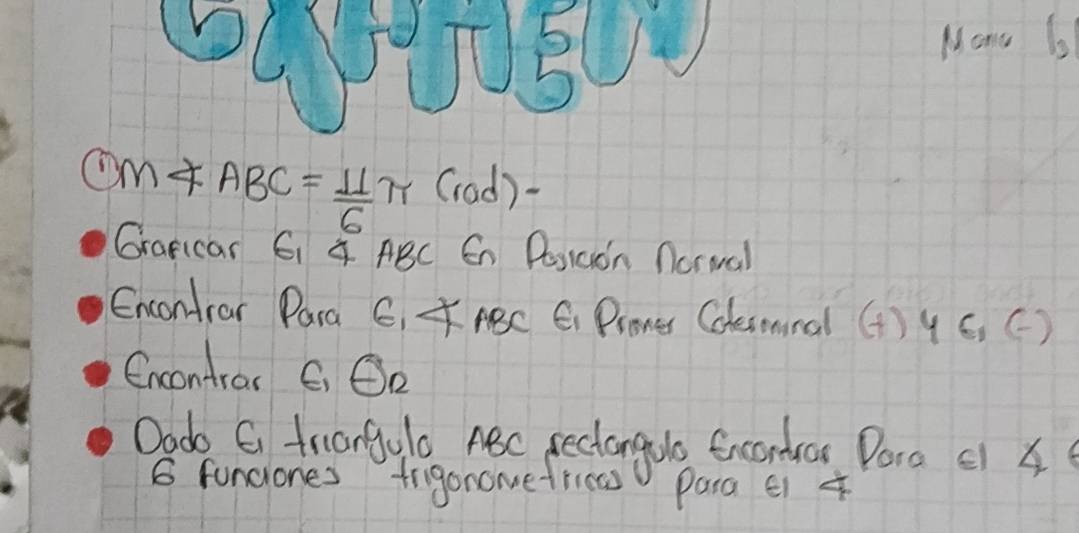 EXAMEN
① m∡ ABC = 11/6 π (rad)-
Graficar El ∡ ABC En Posición normal
Encontrar Para El ∡ ABC El Primer Coterminal (+) y El (-)
Encontrar El ΘR
Dado El triangulo ABC rectangulo Encontrar Para El ∡
6 funciones trigonometricas Para El ∡